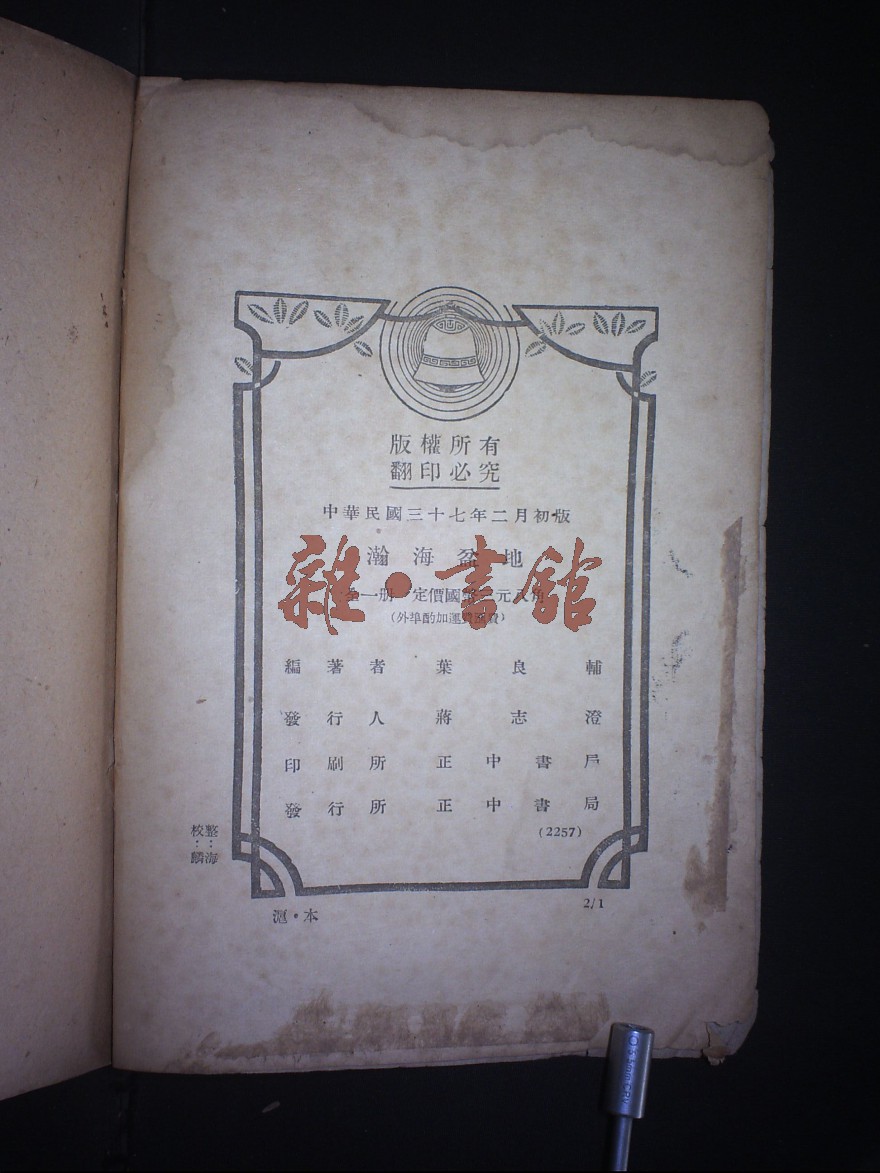 版權所有
翻印必究
中華民國三十七年二月初版
瀚海盆地
雜·書館
全一册 定價國幣三元八角
(外埠酌加運費滙費)
編著者 葉良輔
發行人 蔣志澄
印刷所 正中書局
發行所 正中書局
(2257)
整:海
校:麟
滬·本
2/1